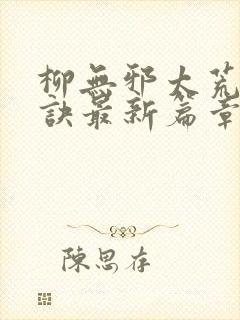 柳無邪太荒
訣最新篇章
陳思存